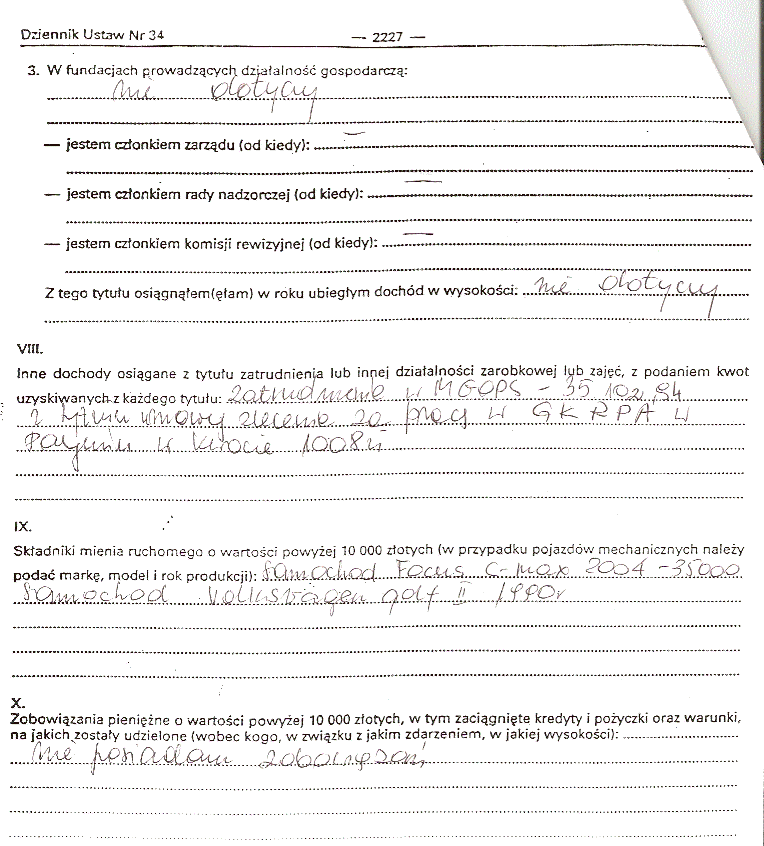 Dziennik Ustaw Nr 34 — 2227 —
3. W fundacjach prowadzących działalność gospodarczą:
nie dotyczy
— jestem członkiem zarządu (od kiedy): —
— jestem członkiem rady nadzorczej (od kiedy): —
— jestem członkiem komisji rewizyjnej (od kiedy): —
Z tego tytułu osiągnąłem(ęłam) w roku ubiegłym dochód w wysokości: nie dotyczy
VIII.
Inne dochody osiągane z tytułu zatrudnienia lub innej działalności zarobkowej lub zajęć, z podaniem kwot
uzyskiwanych z każdego tytułu: zatrudnienie w MGOPS - 35 102,84
z tytułu umowy zlecenie za pracę w GKRPA w
w kwocie 1008 zł
IX.
Składniki mienia ruchomego o wartości powyżej 10 000 złotych (w przypadku pojazdów mechanicznych należy
podać markę, model i rok produkcji): samochod Focus C-max 2004 - 35000
samochod Volkswagen golf II 1990r
X.
Zobowiązania pieniężne o wartości powyżej 10 000 złotych, w tym zaciągnięte kredyty i pożyczki oraz warunki,
na jakich zostały udzielone (wobec kogo, w związku z jakim zdarzeniem, w jakiej wysokości):
nie posiadam zobowiązań